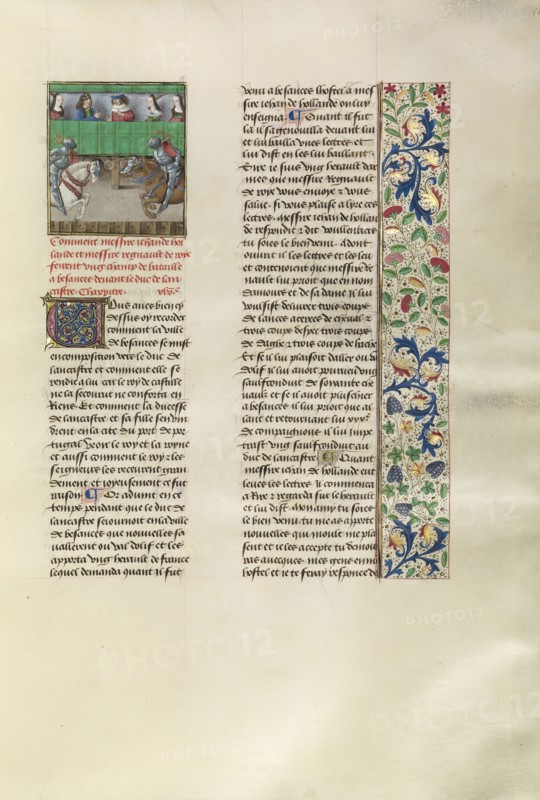 Comment messire iehan de hol
lande et messire regnault de roye
firent ung champ de bataille
a besances devant le duc de lan
castre. Chappitre
Vous avez bien cy
dessus oy recorder
comment la ville
de besances se mist
en composition vers le duc de
lancastre et comment elle se
rendi a lui car le roy de castille
ne la secourut ne conforta en
riens. Et comment la ducesse
de lancastre et sa fille sen vin
drent en la cite du port de por
tugal veoir le roy et la royne
et aussi comment le roy et les
seigneurs les receurent gran
dement et ioyeusement ce fut
raison. Or advint en ce
temps pendant que le duc de
lancastre seiournoit en la ville
de besances que nouvelles sa
vallerent ou val dolif et les
apporta ung herault de france
lequel demanda quant il fut
venu a besances lhostel a mes
sire iehan de hollande on luy
enseigna. Quant il fut
la il sagenouilla devant lui
et lui bailla unes lettres. et
lui dist en les lui baillant.
Sire ie suis ung herault dar
mes que messire Regnault
de roye vous envoye et vous
salue. si vous plaise a lyre ces
lettres. Messire iehan de hollan
de respondi et dit voullentiers
tu soies le bien venu. Adont
ouvri il les lettres et les leu
et contenoient que messire re
nault lui prioit que en nom
damours et de sa dame il lui
voulsist delivrer trois coups
de lances acerees de cheval et
trois coups despee trois coups
de dague et trois coups de hache
Et se il lui plaisoit daller ou val
dolif il lui avoit pourveu ung
saufconduit de soixante che
vaulx et se il avoit plus chier
a besances il lui prioit que al
last et retournant lui xxxe
de compaignons il lui impe
trast ung saufconduit au
duc de lancastre. Quant
messire iehan de hollande eut
leues ces lettres il commenca
a rire et regarda sur le herault
et lui dist. Mon amy tu soies
le bien venu tu mas apporte
nouvelles qui moult me plai
sent et ie les accepte tu demou
ras avecques mes gens en mon
hostel et ie te feray response de